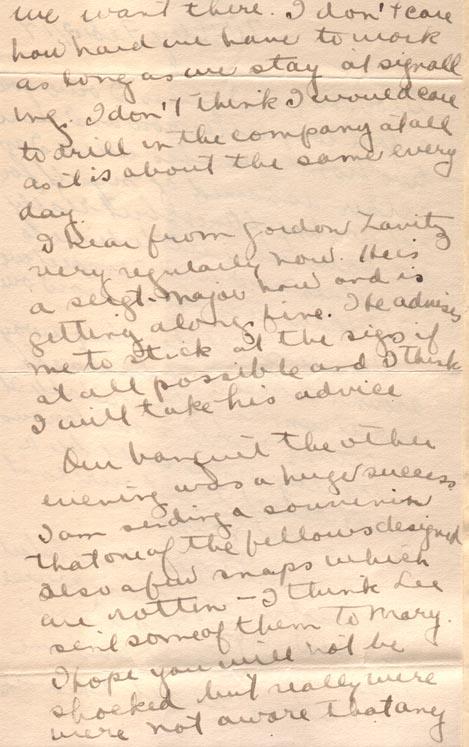 we want there. I don't care
how hard we have to work
as long as we stay at signall
ing. I don't think I would care
to drill in the company at all
as it is about the same every
day.
I hear from Gordon Zavitz
very regularly now. He is
a sergt. major now and is
getting along fine. He advises
me to stick at the sigs if
at all possible and I think
I will take his advice
Our banquet the other
evening was a huge success
I am sending a souvenir
that one of the fellows designed
also a few snaps which
are rotten - I think Lee
sent some of them to Mary.
I hope you will not be
shocked but really we
were not aware that any